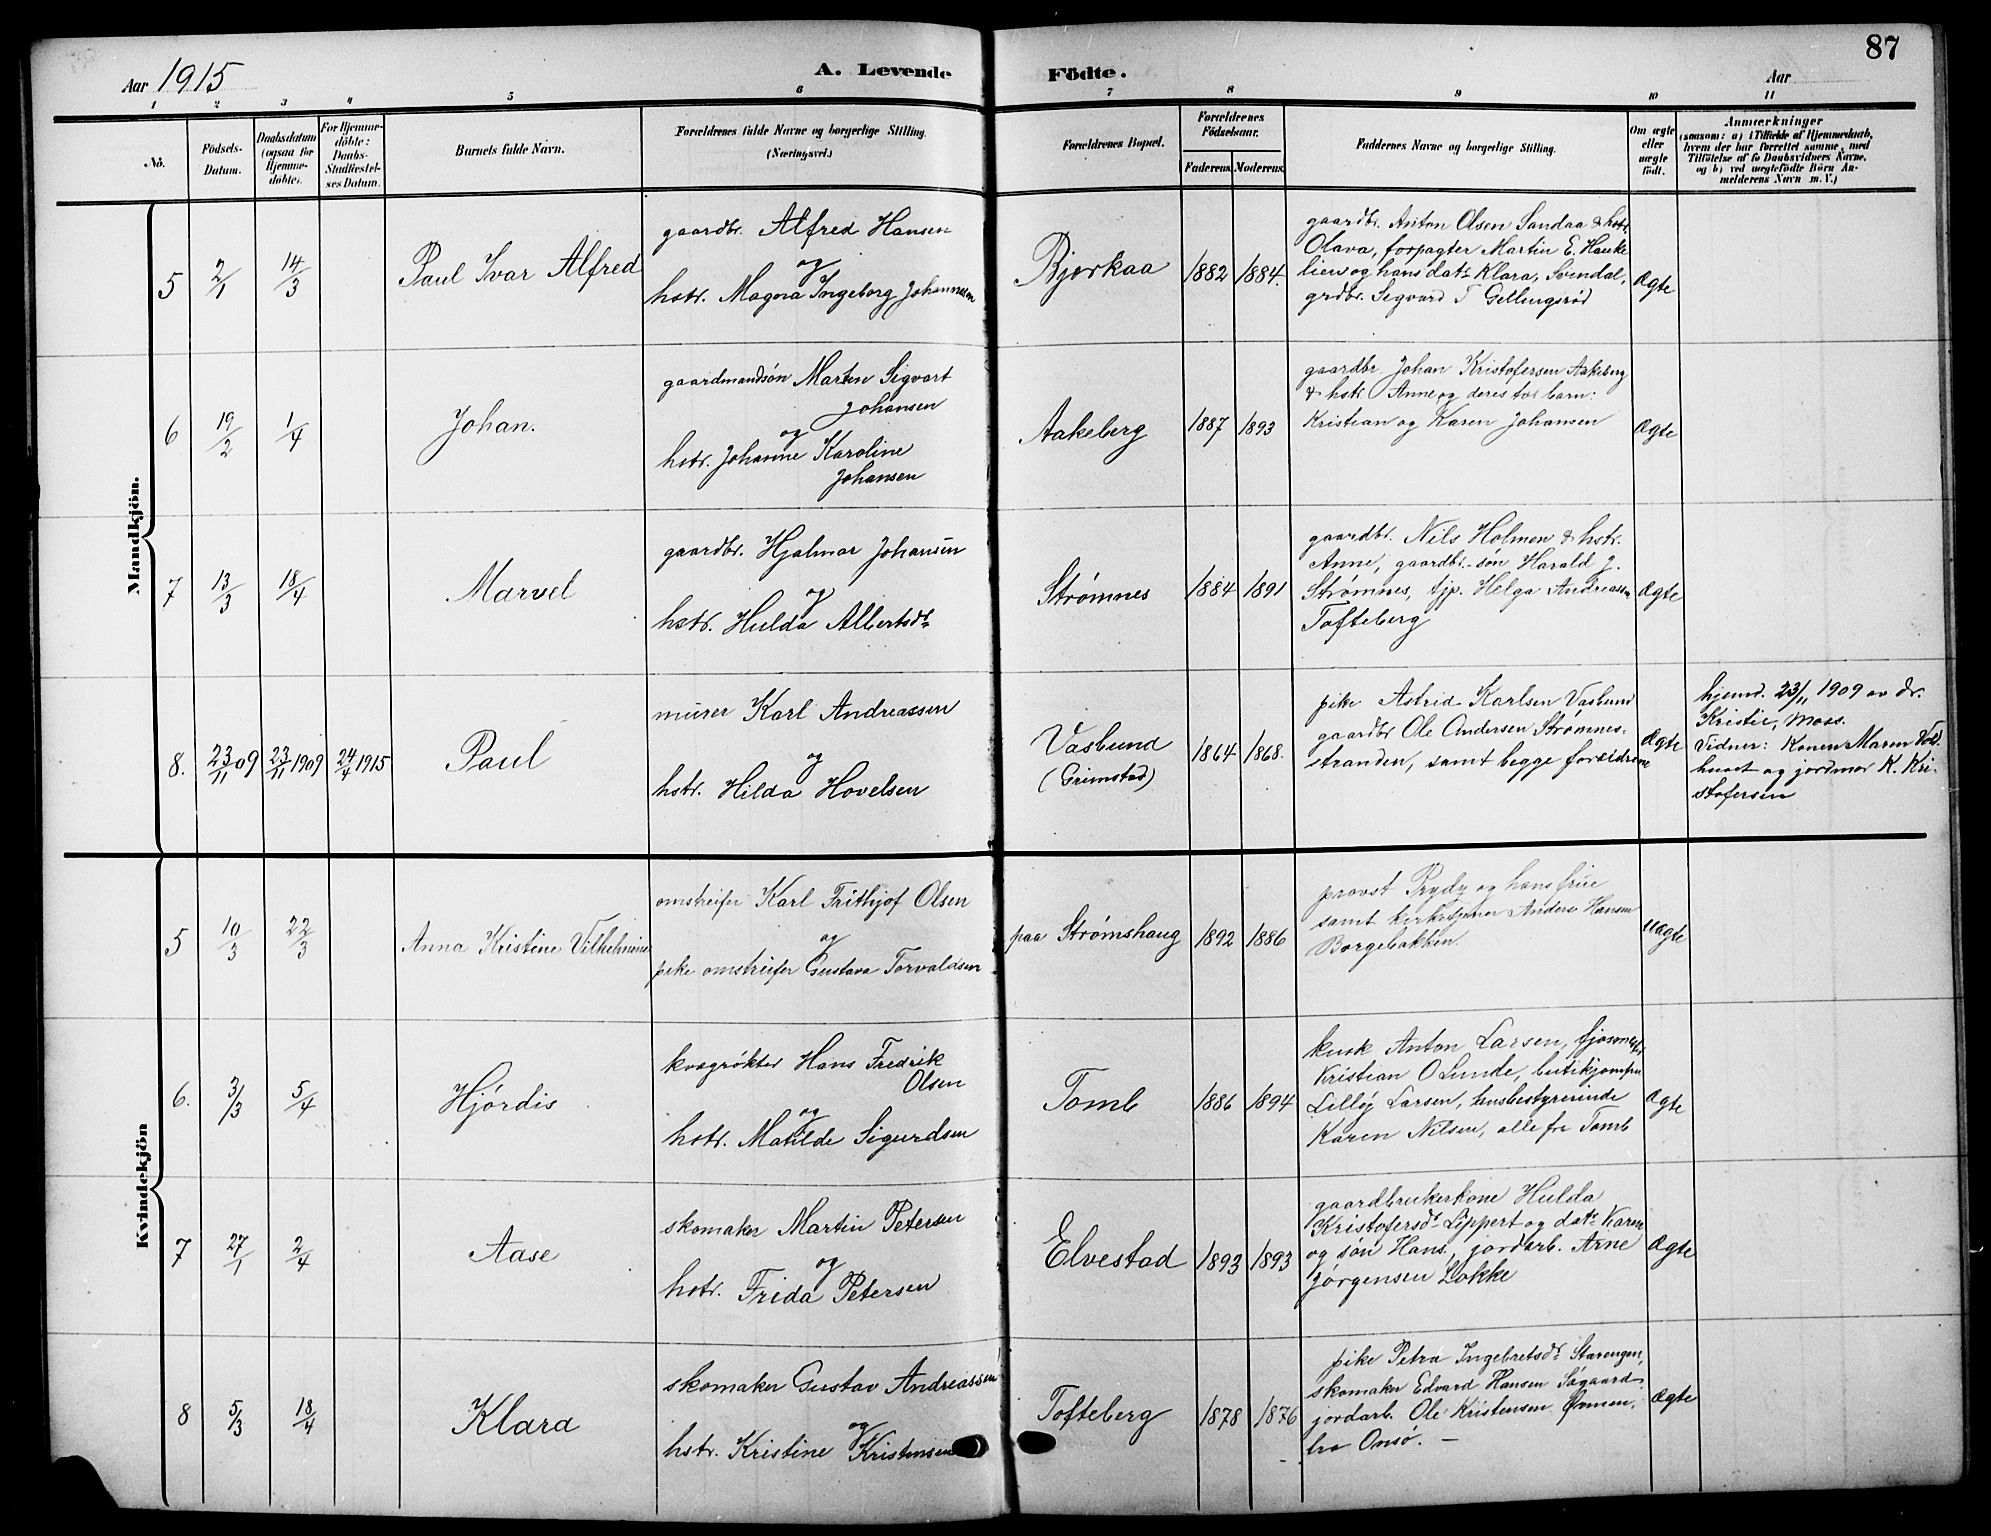 Aar 1915
A. Levende Födte.
Aar
87
1 2 3 4 5 6 7 8 9 10 11
No.
Födsels-
Datum.
Daabsdatum
(ogsaa for
Hjemme-
döbte).
For Hjemme-
döbte:
Daabs-
Stadfæstel-
ses Datum.
Barnets fulde Navn.
Forældrenes fulde Navne og borgerlige Stilling.
(Næringsvei.)
Forældrenes Bopæl.
Forældrenes
Födselsaar.
Faderens. Moderens.
Faddernes Navne og borgerlige Stilling.
Om ægte
eller
uægte
födt.
Anmærkninger
(saasom: a) i Tilfælde af Hjemmedaab,
hvem der har forrettet samme, med
Tilföielse af to Daabsvidners Navne,
og b) ved uægtefödte Börn An-
melderens Navn m. V.)
Mandkjön.
5
2/1
14/3
Paul Ivar Alfred
gaardbr. Alfred Hansen
og
hstr. Magna Ingeborg Johannesen
Bjørkaa
1882
1884.
gaardbr. Anton Olsen Sandaa & hstr.
Olava, forpagter Martin E. Hauke
lien og hans datr Klara, Svindal,
grdbr. Sigvard T Gellungsrød
Ægte
6
19/2
1/4
Johan.
gaardmandsøn Marten Sigvart
Johansen
og
hstr. Johanne Karoline
Johansen
Aakeberg
1887
1893
gaardbr Johan Kristofersen Aakeberg
& hstr Anne og deres to barn:
Kristian og Karen Johansen
Ægte
7
13/3
18/4
Marvel
gaardbr. Hjalmar Johansen
og
hstr. Hulda Albertsdtr
Strømnes
1884
1891
gaardbr. Nils Holmen & hstr.
Anne, gaardbr. søn Harald J.
Strømnes, tjp. Helga Andreassen
Tofteberg
Ægte
8.
23/11 09
23/11 1909
24/4 1915
Paul
murer Karl Andreassen
og
hstr. Hilda Hovelsen
Vasbund
(Grimstad)
1864
1868.
pike Astrid Karlsen Vasbund
gaardbr Ole Andersen Strømnes-
stranden, samt begge forældrene
Ægte
hjemd. 23/11 1909 av dr.
Kristie, Moss.
Vidner: Konen Maren
og jordmor K. Kri-
stofersen
Kvindekjön
5
10/3
22/3
Anna Kristine Vilhelmine
omstreifer Karl Frithjof Olsen
og
pike omstreifer Gustava Torvaldsen
paa Strømshaug
1892
1886
provst Prydz og hans frue
samt kirketjener Anders Hansen
Borgebakken.
Uægte
6.
3/3
5/4
Hjørdis
kvægrøkter Hans Fredrik
Olsen
og
hstr. Matilde Sigurdsen
Tomb
1886
1894
kusk Anton Larsen,
Kristian O Lunde, butikjomfru
Lilly Larsen, husbestyrerinde
Karen Nilsen, alle fra Tomb
Ægte
7
27/1
2/4
Aase
skomaker Martin Petersen
og
hstr. Frida Petersen
Elvestad
1893
1893
gaardbrukerkone Hulda
Kristofersdtr Lippert og datr Karen
og søn Hans, jordarb. Arne
Jørgensen Løkke
Ægte
8
5/3
18/4
Klara
skomaker Gustav Andreassen
og
hstr. Kristine Kristensen
Tofteberg
1878
1876
pike Petra Ingebretsdtr Starengen,
skomaker Edvard Hansen Søgaard,
jordarb. Ole Kristensen
fra Onsø. –
Ægte